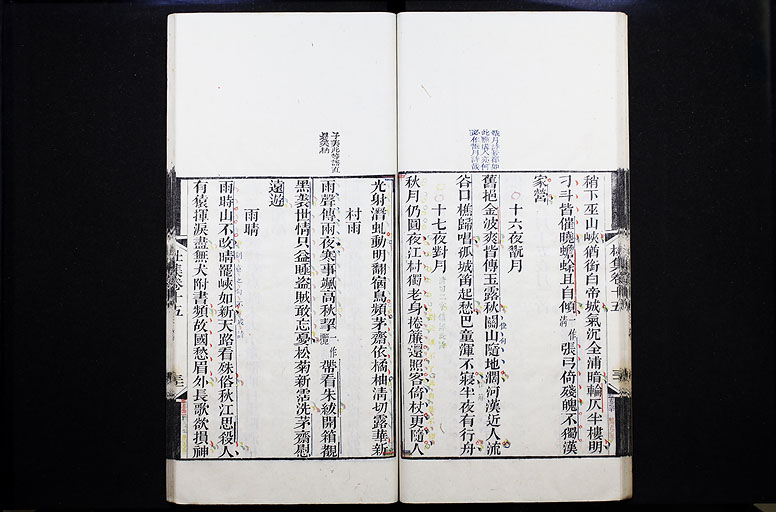 稍下巫山峽猶銜白帝城氣沉全浦暗輪仄半樓明
刁斗皆催曉蟾蜍且自傾一作淸張弓倚殘魄不獨漢
家營
十六夜翫月
舊挹金波爽皆傳玉露秋關山隨地闊河漢近人流
谷口樵歸唱孤城笛起愁巴童渾不寢半夜有行舟
十七夜對月
秋月仍圓夜江村獨老身捲簾還照客倚杖更隨人
光射潛虬動明翻宿鳥頻茅齋依橘柚淸切露華新
村雨
雨聲傳兩夜寒事颯高秋挈一作攬帶看朱紱開箱覩
黑裘世情只益睡盜賊敢忘憂松菊新霑洗茅齋慰
遠遊
雨晴
雨時山不改晴罷峽如新天路看殊俗秋江思殺人
有猿揮淚盡無犬附書頻故國愁眉外長歌欲損神
杜集卷十五